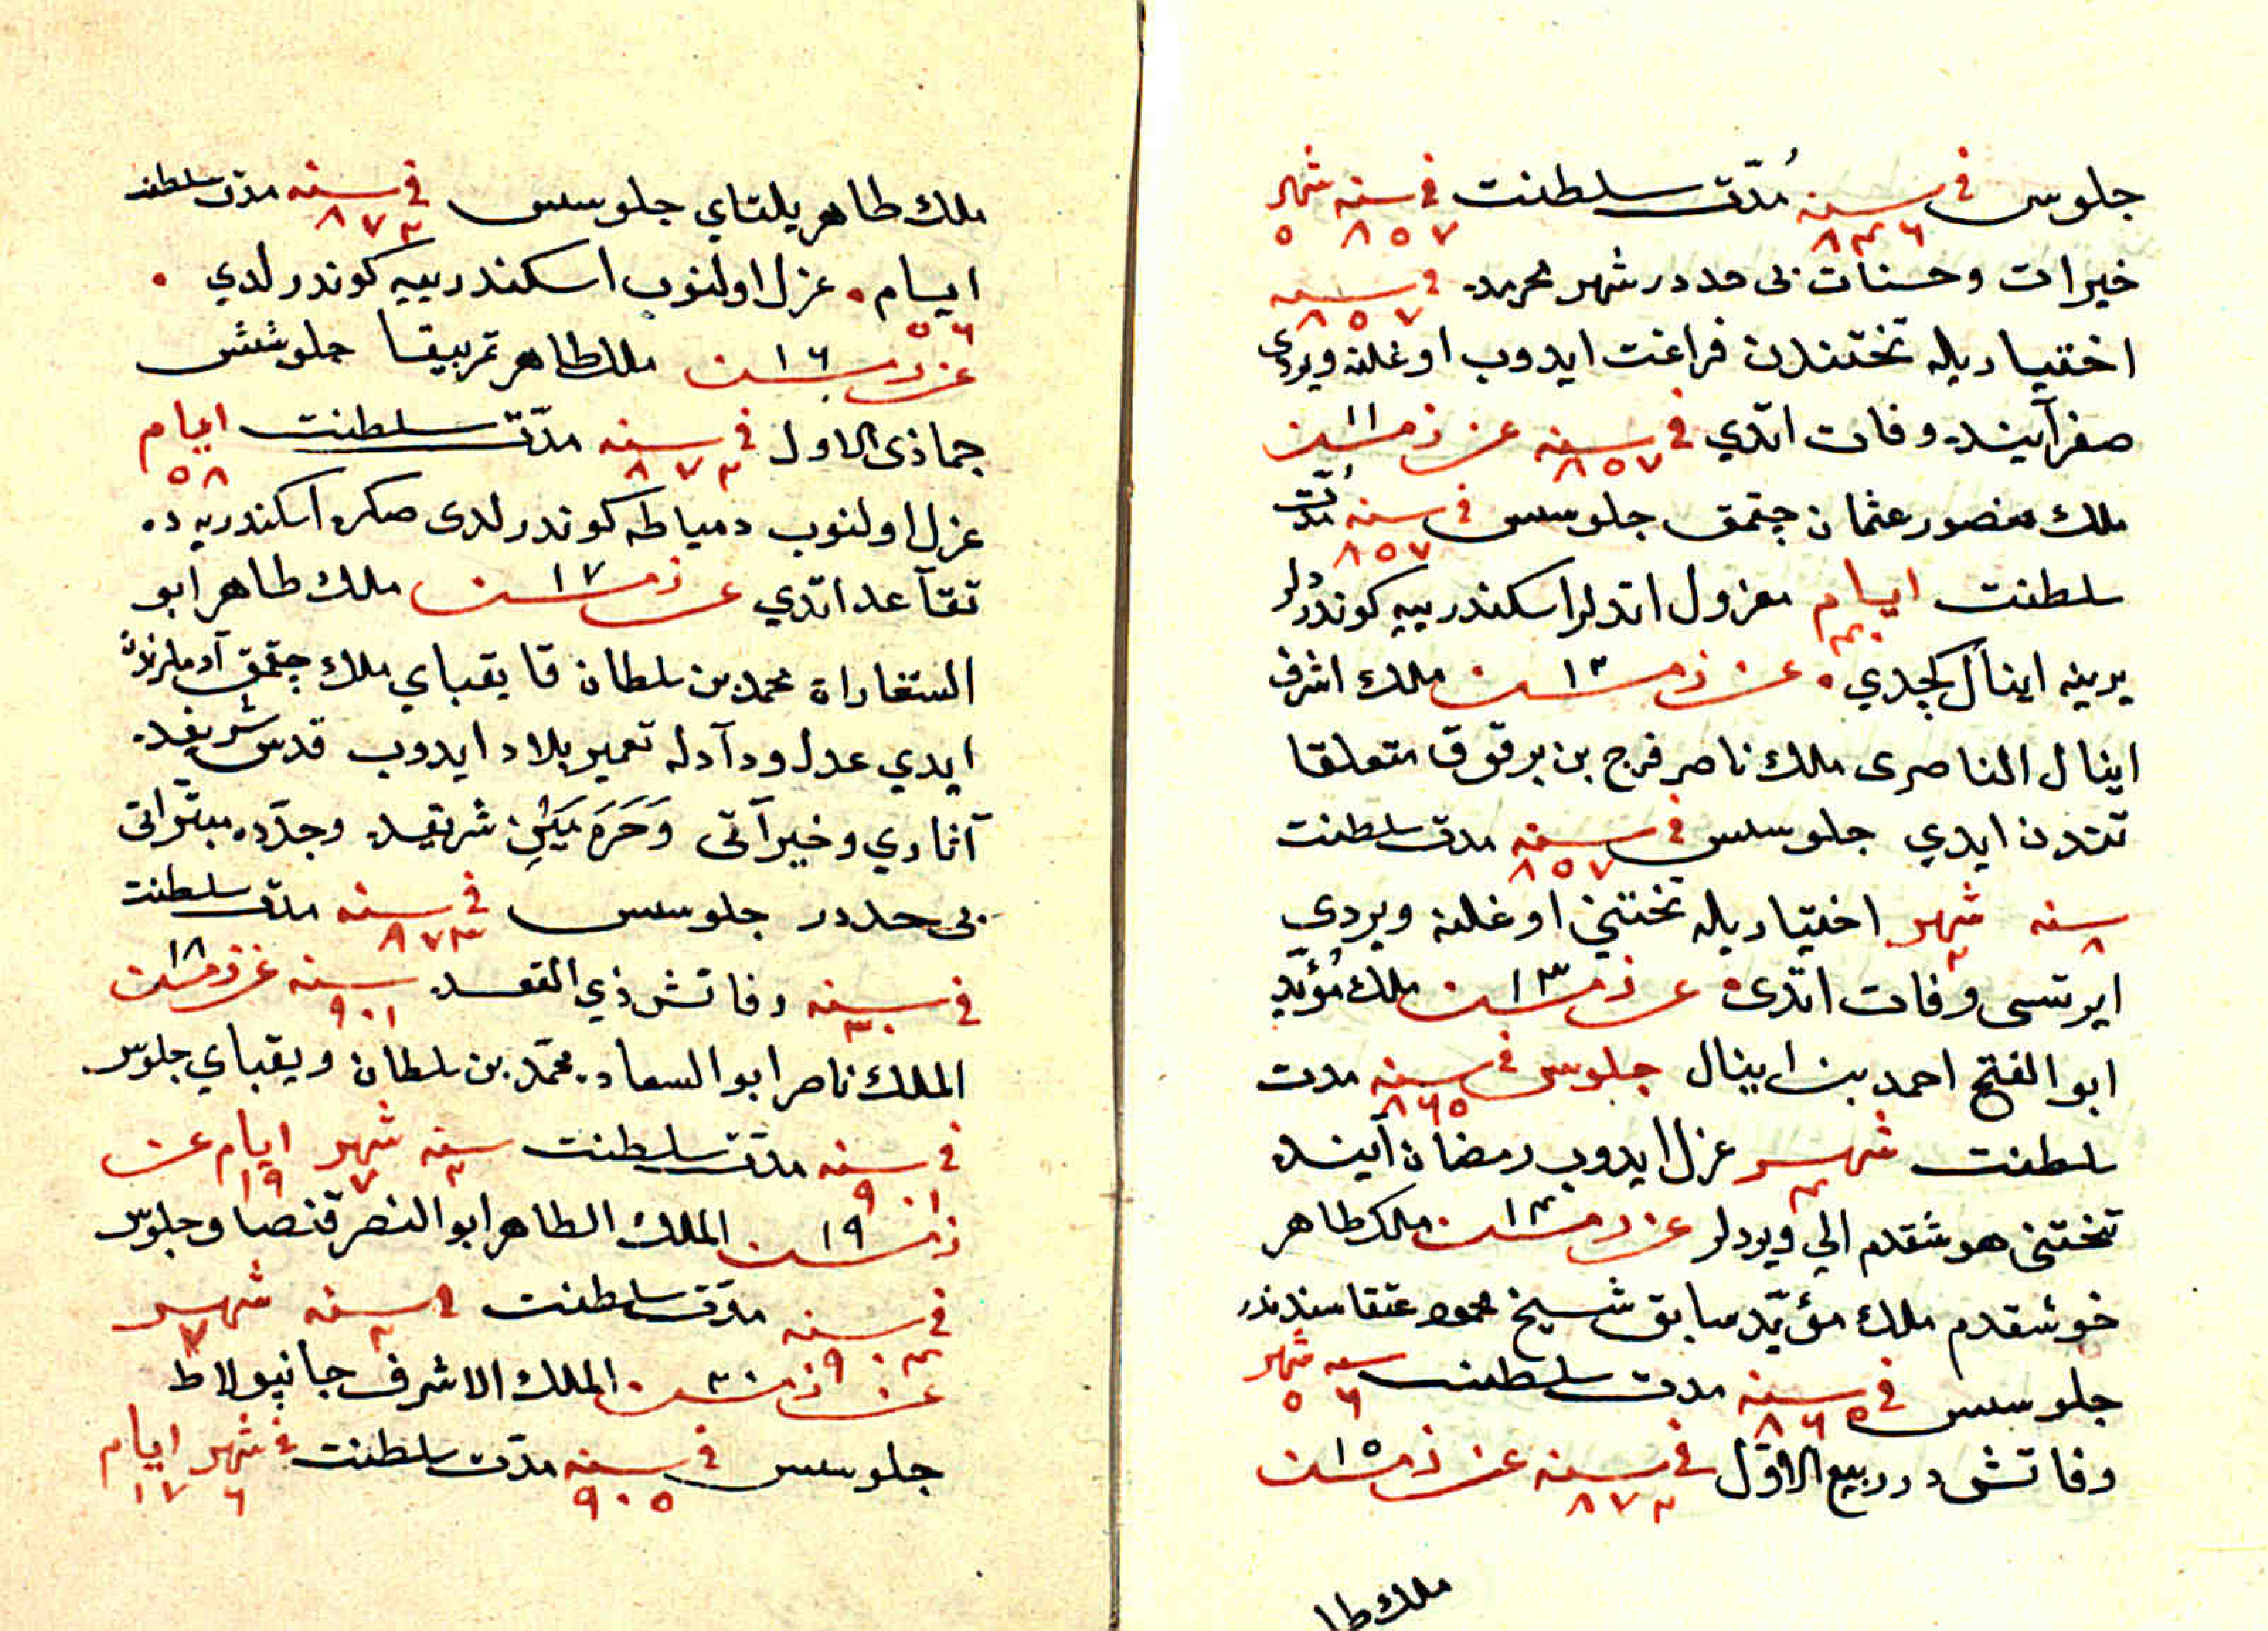 جلوس في سنه ٨٤٦ مُدّت سلطنت في سنه ٨٥٧ شهر ٥
خيرات وحسنات بى حددر شهر محرمده في سنه ٨٥٧
اختياريله تختندن فراغت ايدوب اوغلنه ويردى
صفر آينده وفات اتدي في سنه ٨٥٧ عن زمسن ١١
ملك منصور عثمان چتمق جلوسس في سنه ٨٥٧ مُدّت
سلطنت ايام ٤٠ معزول اتدلر اسكندرييه كوندردلر
يرينه اينال كچدي عن زمسن ١٢ ملك اشرف
اينال الناصرى ملك ناصر فرج بن برقوق متعلقا
تندن ايدي جلوسس في سنه ٨٥٧ مدت سلطنت
سنه ٨ شهر ٢ اختياريله تختني اوغلنه ويردى
ايرتسى وفات اتدى عن زمسن ١٣ ملك مُؤيّد
ابو الفتح احمد بن اينال جلوس في سنه ٨٦٥ مدت
سلطنت شهر ٤ عزل ايدوب رمضان آينده
تختنى هوشقدم الي ويردلر عن زمسن ١٤ ملك طاهر
خوشقدم ملك مؤيّد سابق شيخ محمود عتقاسندندر
جلوسس في سنه ٨٦٥ مدت سلطنت سنه ٦ شهر ٥
وفاتش در ربيع الاوّل في سنه ٨٧٢ عن زمسن ١٥
ملك طا
ملك طاهر يلتاي جلوسس في سنه ٨٧٢ مدت سلطنت
ايام ٥٦ عزل اولنوب اسكندرييه كوندرلدي
عن زمسن ١٦ ملك طاهر تمربيقا جلوشش
جماذى الاول في سنه ٨٧٢ مدّت سلطنت ايام ٥٨
عزل اولنوب دمياطه كوندرلدى صكره اسكندريه ده
تقآعد اتدي عن زمسن ١٧ ملك طاهر ابو
الستغاراة محمد بن سلطان قايقباي ملك چتمق آدملرندن
ايدي عدل ودآدله تعمير بلاد ايدوب قدس شريفده
آثاري وخيرآتى وَحَرَمَيَيْنِ شريفيده وجدّده مبتراتى
بى حددر جلوسس في سنه ٨٧٣ مدّت سلطنت
في سنه ٣٠ وفاتش ذي القعده سنه ٩٠١ عن زمسن ١٨
الملك ناصر ابو السعاده محمّد بن سلطان ويقباي جلوس
في سنه ٩٠١ مدّت سلطنت سنه ٢ شهر ٧ ايام ١٩ عن
زمسن ١٩ الملك الطاهر ابو النصر قنصاو جلوس
في سنه ٩٠٤ مدّت سلطنت في سنه ٢ شهر ٧
عن زمسن ٢٠ الملك الاشرف جانپولاط
جلوسس في سنه ٩٠٥ مدّت سلطنت في شهر ٦ ايام ١٧